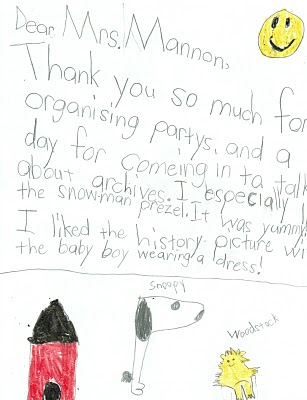 Dear Mrs. Mannon,
Thank you so much for
organising partys, and a
day for comeing in ta talk
about archives. I especially
the snowman prezel. It was yummy
I liked the history picture wi
the baby boy wearing a dress!
Snoopy
Woodstock